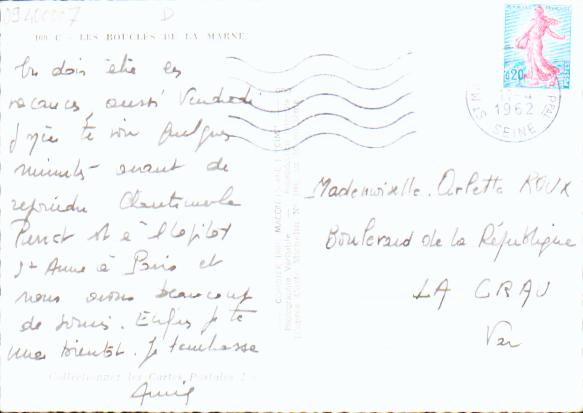 09400007
D
100 C - LES BOUCLES DE LA MARNE
Tu dois être en
vacances, aussi Vendredi
j'espère te voir quelques
minutes avant de
rejoindre
Perret est à l'hôpital
Ste Anne à Paris et
nous avons beaucoup
de soucis. Enfin je te
verrai bientôt. Je t'embrasse
Collectionnez les Cartes Postales
0,20
1962
SEINE
Mademoiselle Arlette ROUX
Boulevard de la République
LA CRAU
Var